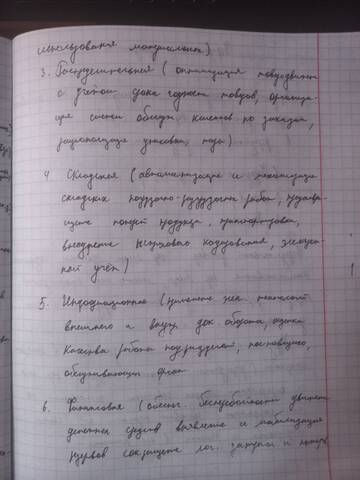 использования материалов)
3. Распределительная (оптимизация товародвижен
с учётом срока годности товаров, организа-
ция системы обслуж. клиентов по заказам,
рационализация упаковки, тары)
4. Складская (автоматизация и механизация
складских погрузочно-разгрузочн работ,
продукции, транспортировки,
внедрение штрихового кодирования,
учёт)
5. Информационная (
внешнего и внутр. док оборота, оценка
качества работы подразделений, поставщиков,
обслуживающих фирм
6. Финансовая (обеспеч. бесперебойности движения
денежных средств выявление и мобилизация
резервов сокращение лог. затрат и потерь